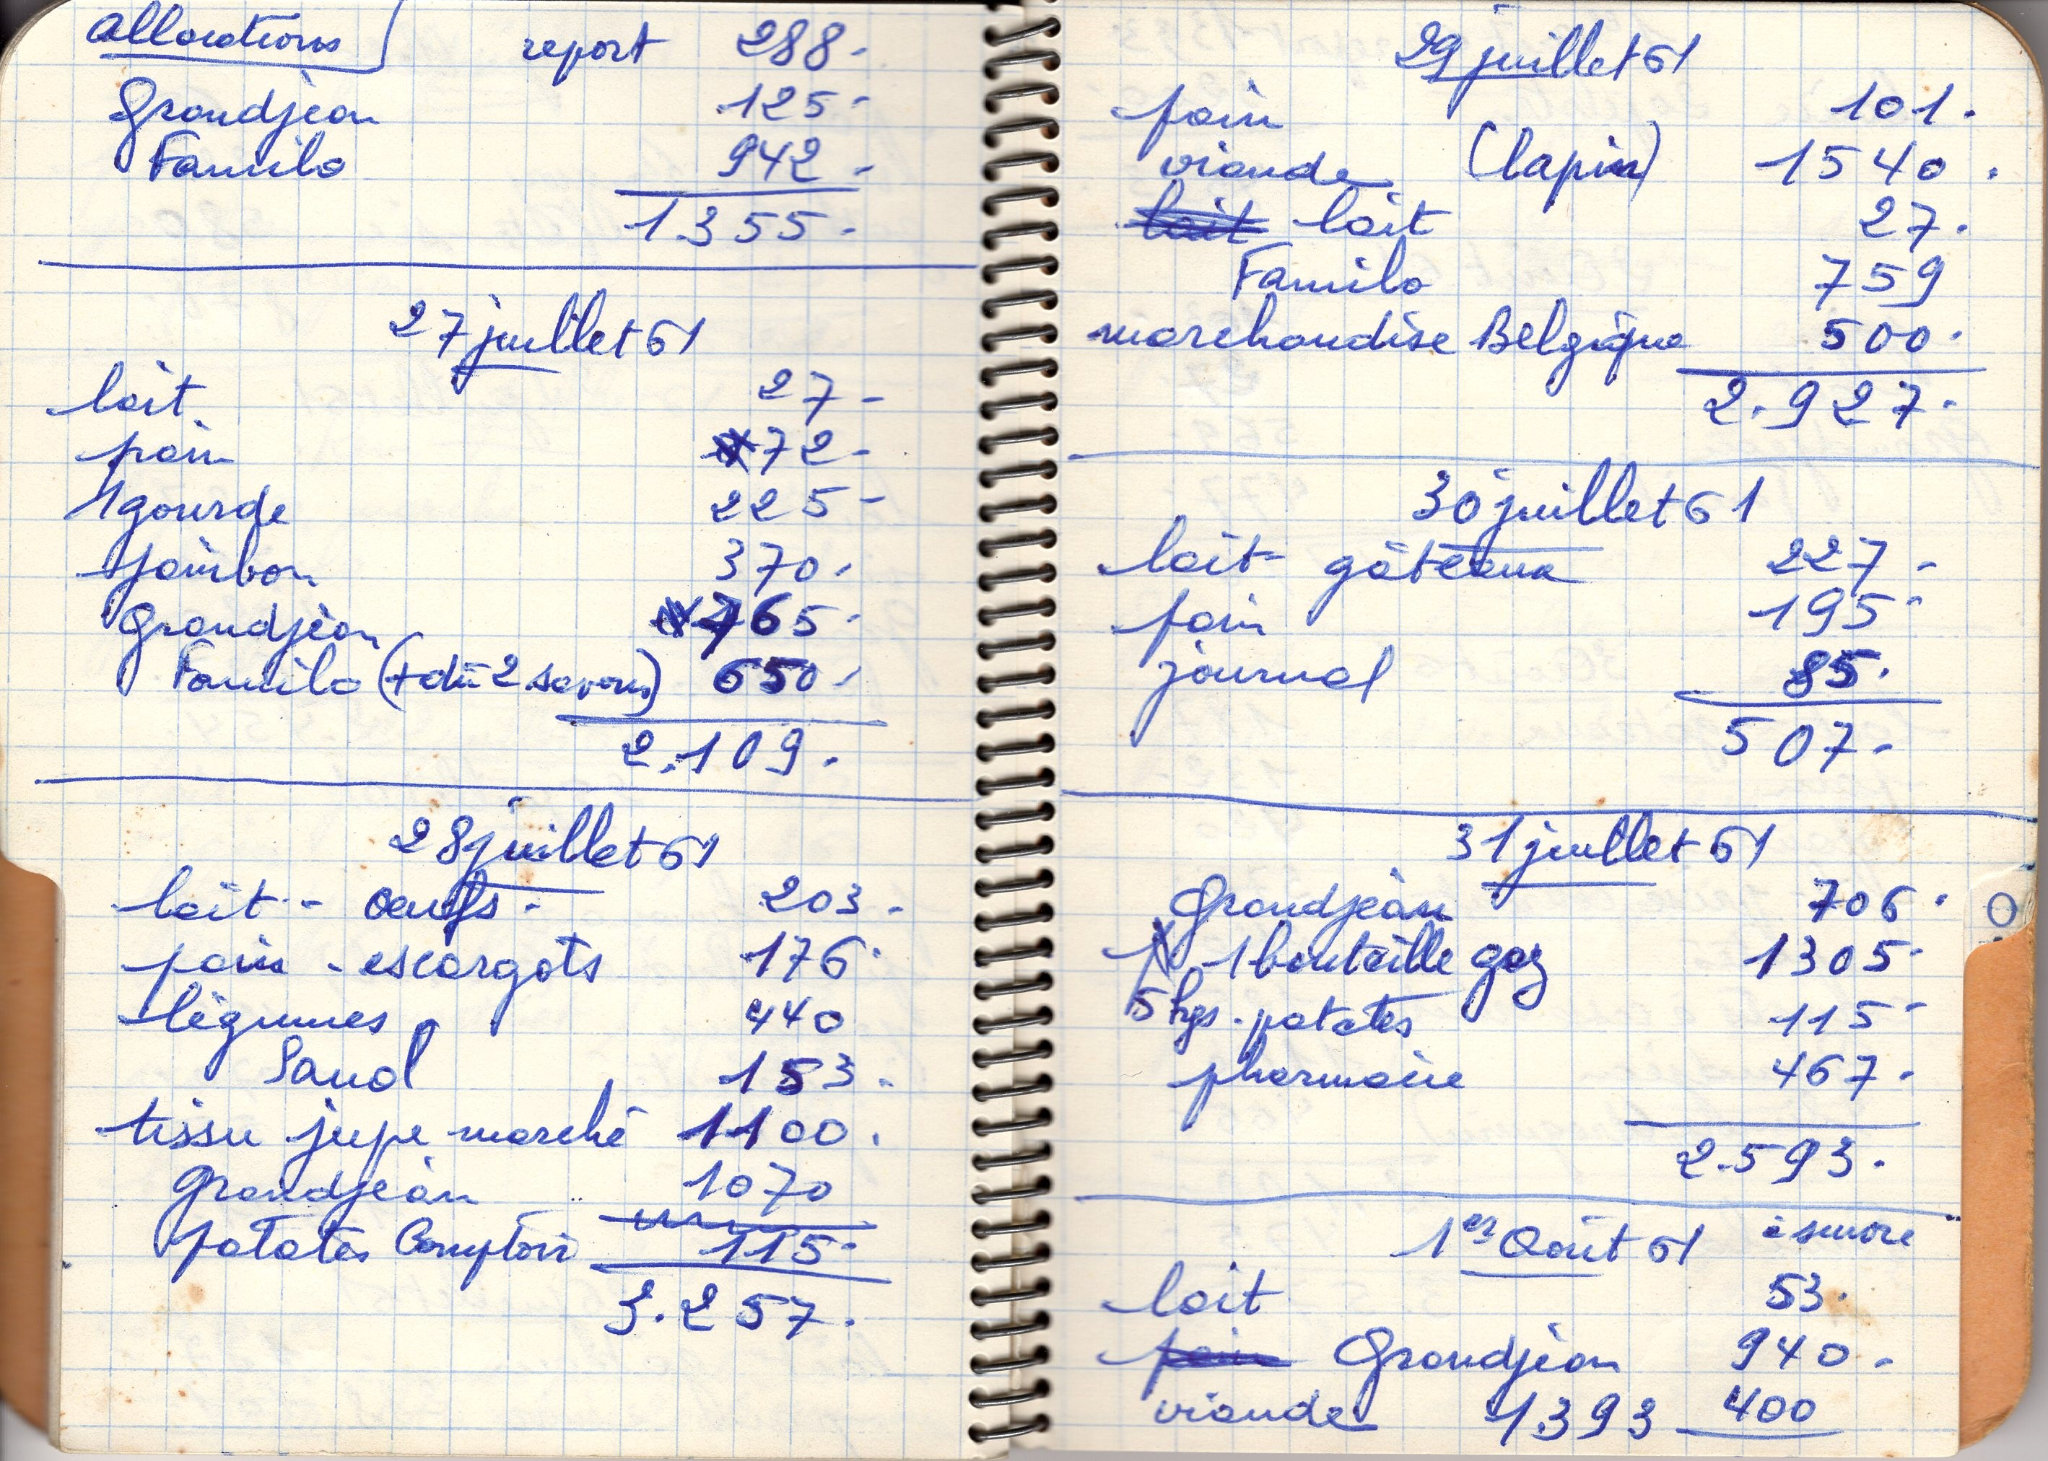 allocations report 288.-
Grandjean 125-
Familo 942.-
1355.-
27 juillet 61
lait 27-
pain 72-
1 gourde 225-
jambon 370.
Grandjean 765.
Familo (+ dû 2 savons) 650.
2.109.
28 juillet 61
lait - oeufs - 203.
pain - escargots 176.
légumes 440
Sanal 153.
tissu jupe marché 1100.
Grandjean 1070
patates Comptoir 115.
3.257.
29 juillet 61
pain 101.
viande (lapin) 1540.
lait lait 27.
Familo 759
marchandise Belgique 500.
2.927.
30 juillet 61
lait gâteaux 227-
pain 195-
journal 85.
507.-
31 juillet 61
Grandjean 706.
1 bouteille gaz 1305.
5 kgs. patates 115-
pharmacie 467.
2.593.
1er Août 61
lait 53.
pain Grandjean 940.-
viande 1.393 400